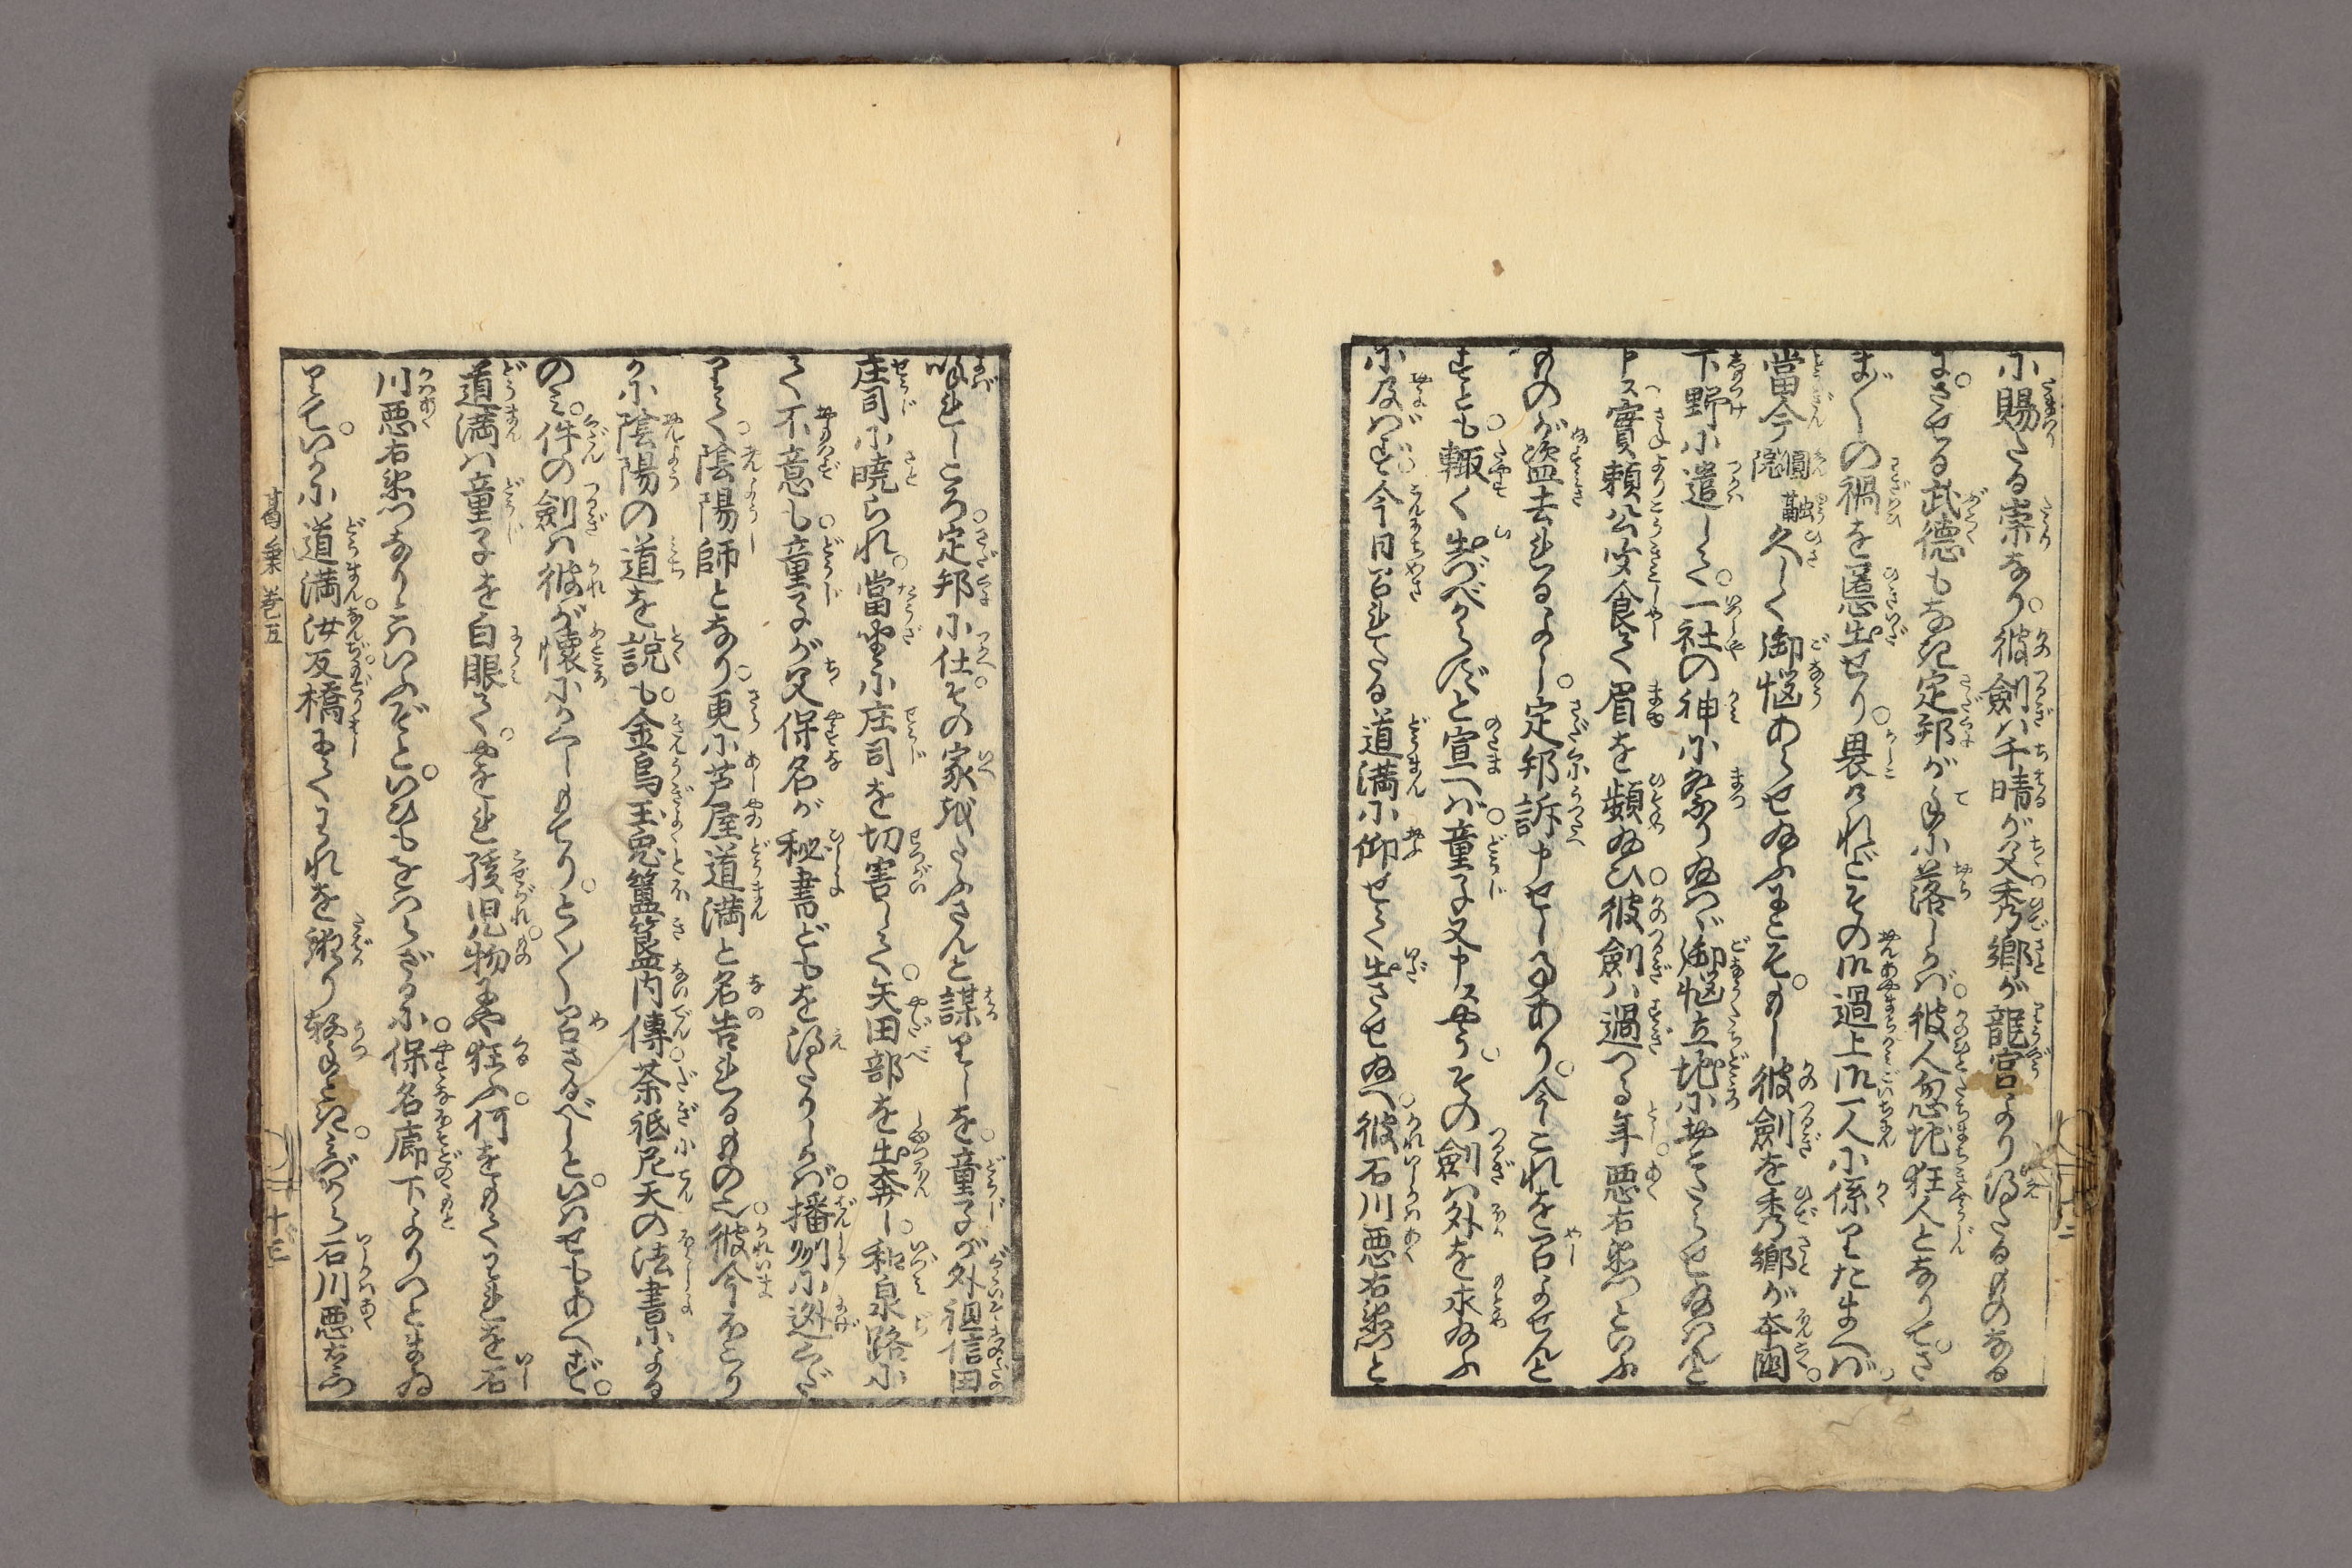 に賜りたる崇なり。彼劍は千晴が父秀郷が龍宮より得たるものなる
に。させる武徳もなき定邦が手に落しかば。彼人忽地狂人となりて。さ
まざまの禍を惹出せり。畏けれどその御過上御一人に係りたまへば。
當今圓融院久しく御悩あらせ給ふにこそ。もし彼劍を秀郷が本國。
下野に遣して。一社の神に祭り給はゞ御悩立地に安らせ給はんと
申ス實頼公聞食て眉を顰め給ひ。彼劍は過つる年悪右衛門といふ
ものが盗去れるよし。定邦訴申せし事あり。今これを召よせんと
すとも。輙く出べからずと宣へば。童子又申スやう。その劍は外を求給ふ
に及ばず。今日召れたる道満に仰せて出させ給へ。彼石川悪右衛門と
呼れしころ。定邦に仕。その家我たふさんと謀りしを。童子が外祖信田
庄司に暁られ。當坐に庄司を切害して。矢田部を出奔し。和泉路に
て不意も。童子が父保名が秘書どもを得たりしかば。播州に迯くだ
りて。陰陽師となり。更に芦屋道満と名告れるもの也。彼今ほこり
かに陰陽の道を説も。金烏玉兎簠簋内傳。荼祗尼天の法書による
のみ。件の劍は彼が懐にかくしもてり。とく〳〵召さるべしと。いはせもあへず。
道満は童子を白眼て。やをれ孩児。物にや狂ふ。何をもてわれを石
川悪右衛門なりとはいふぞと。いひもをはらざるに。保名廊下よりつとまゐ
りて。いかに道満。汝反橋にてわれを撾り撃しとき。みづから石川悪右衛門
葛葉 巻五
十三